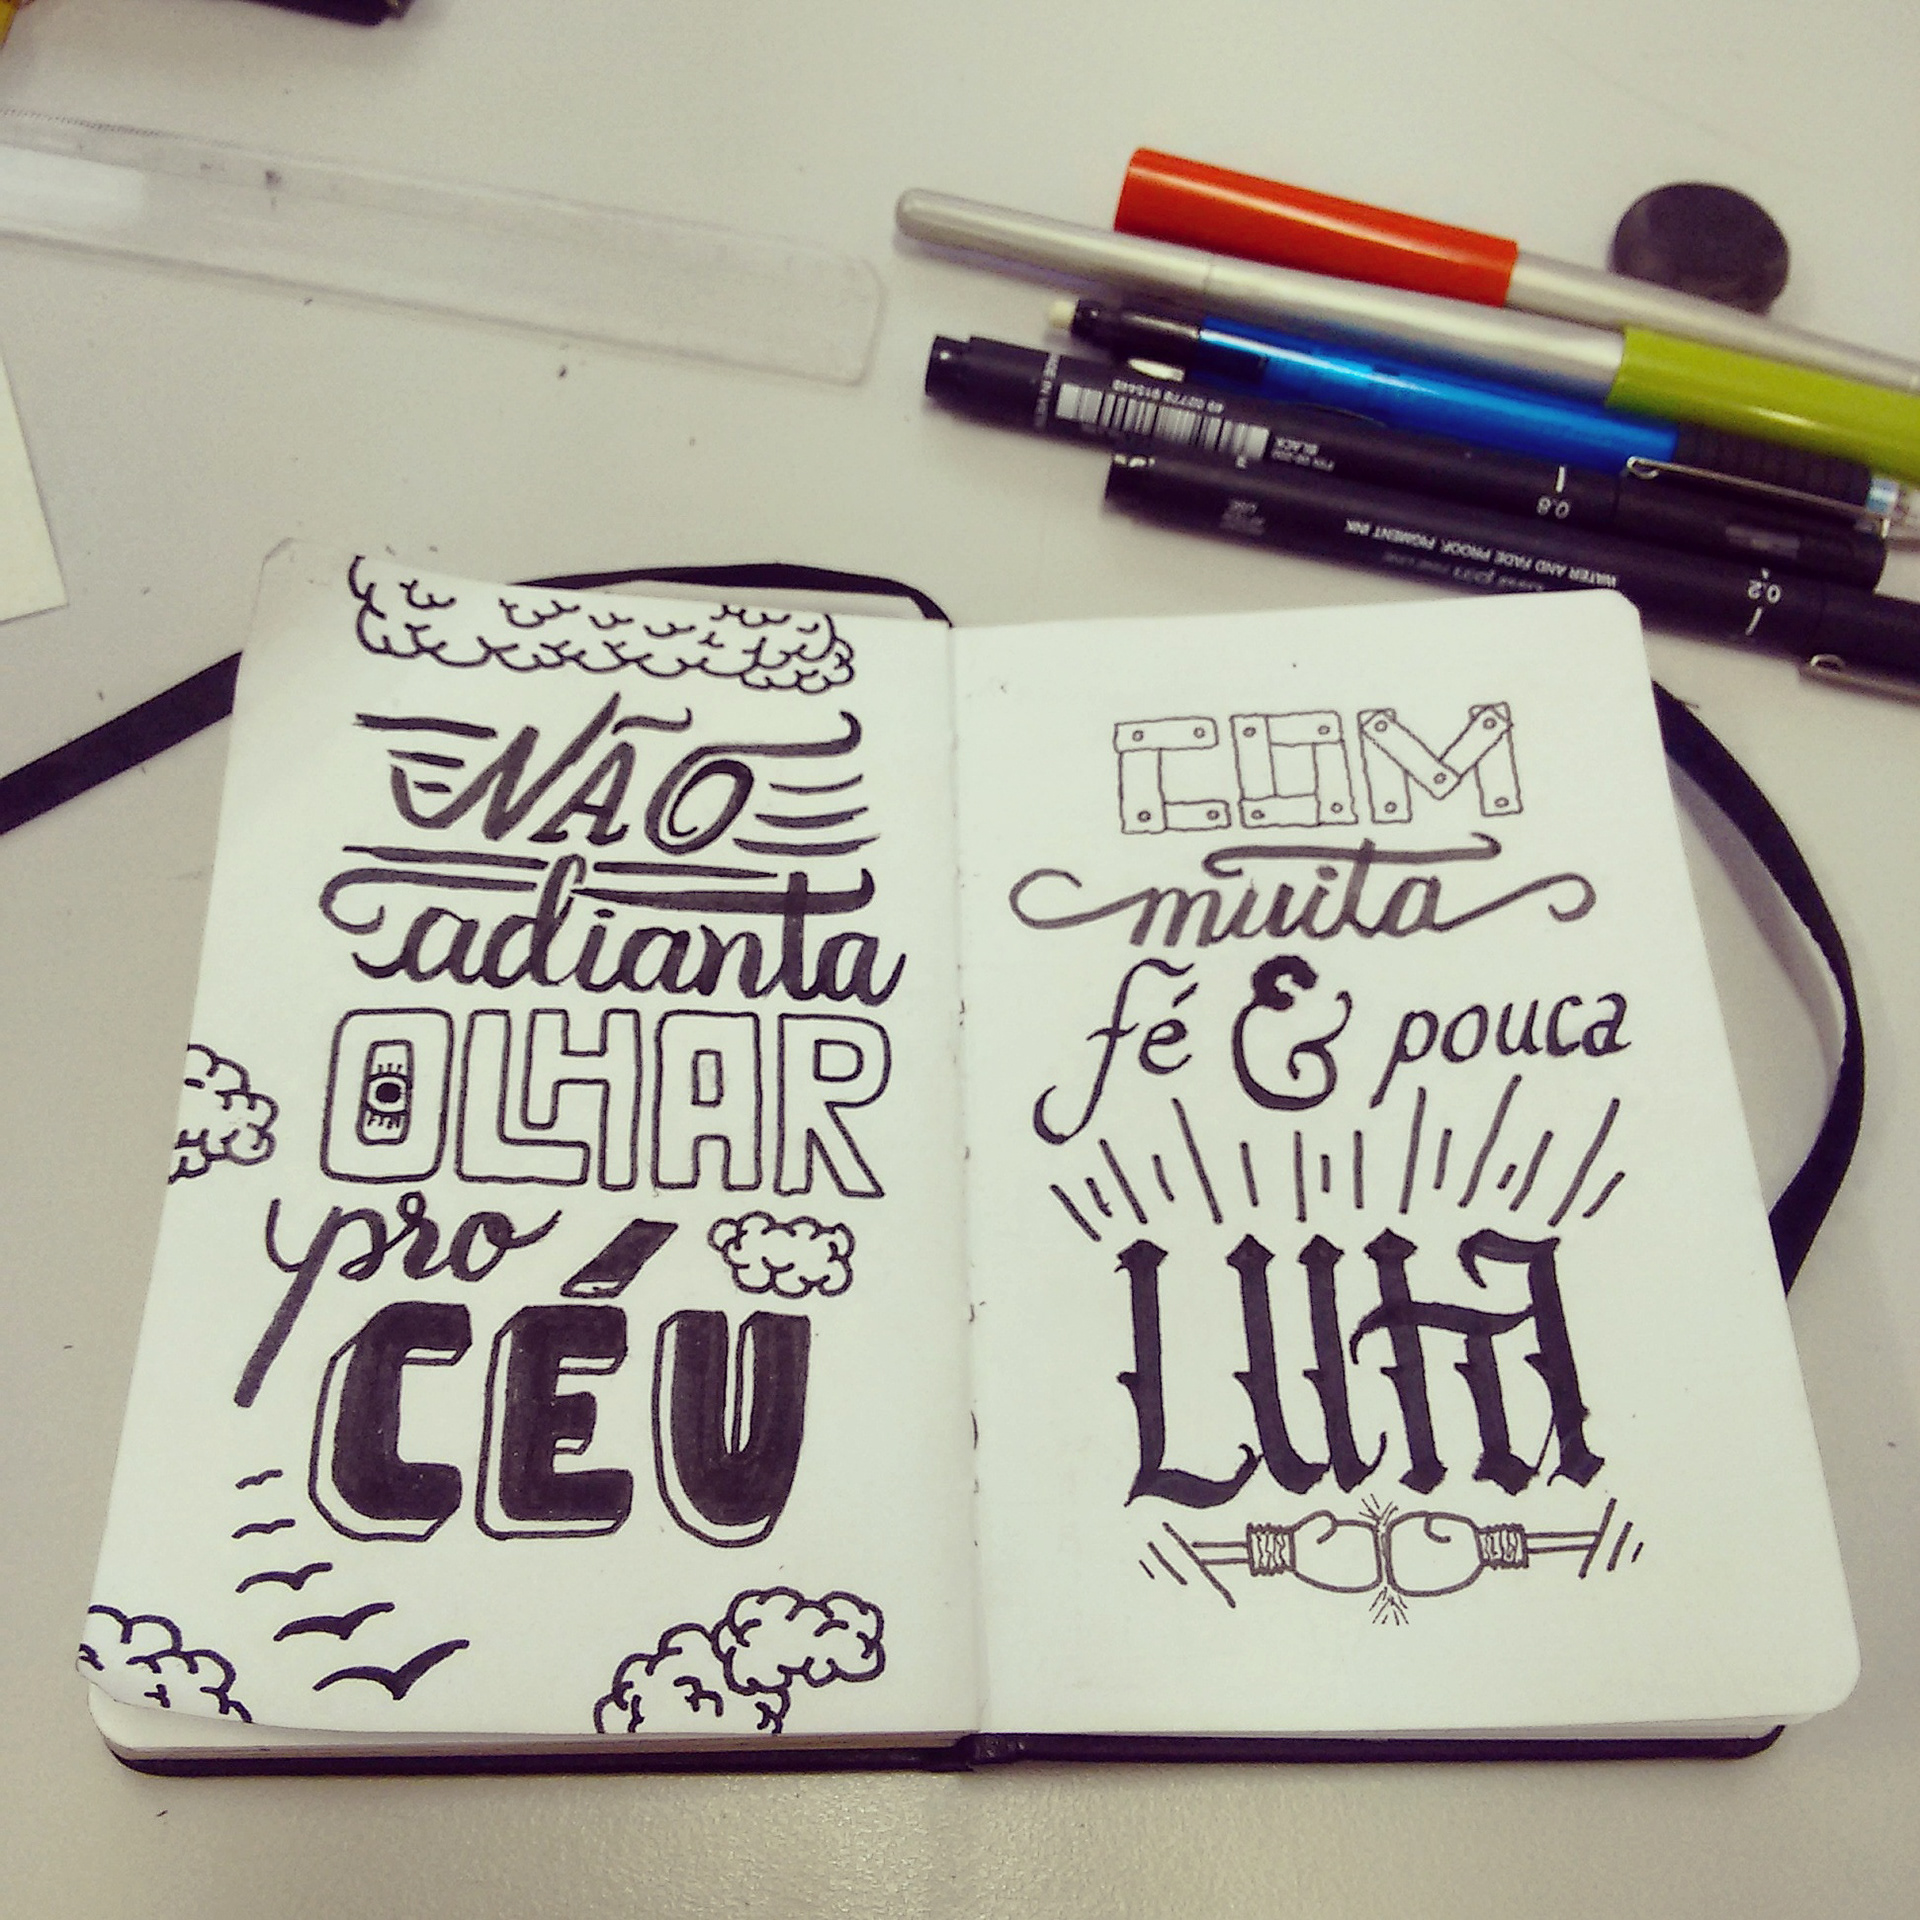 NÃO
adianta
OLHAR
pro
CÉU
COM
muita
fé & pouca
LUTA
BLACK
1
0.8
WATER AND FADE PROOF, PIGMENT INK
0.2
1